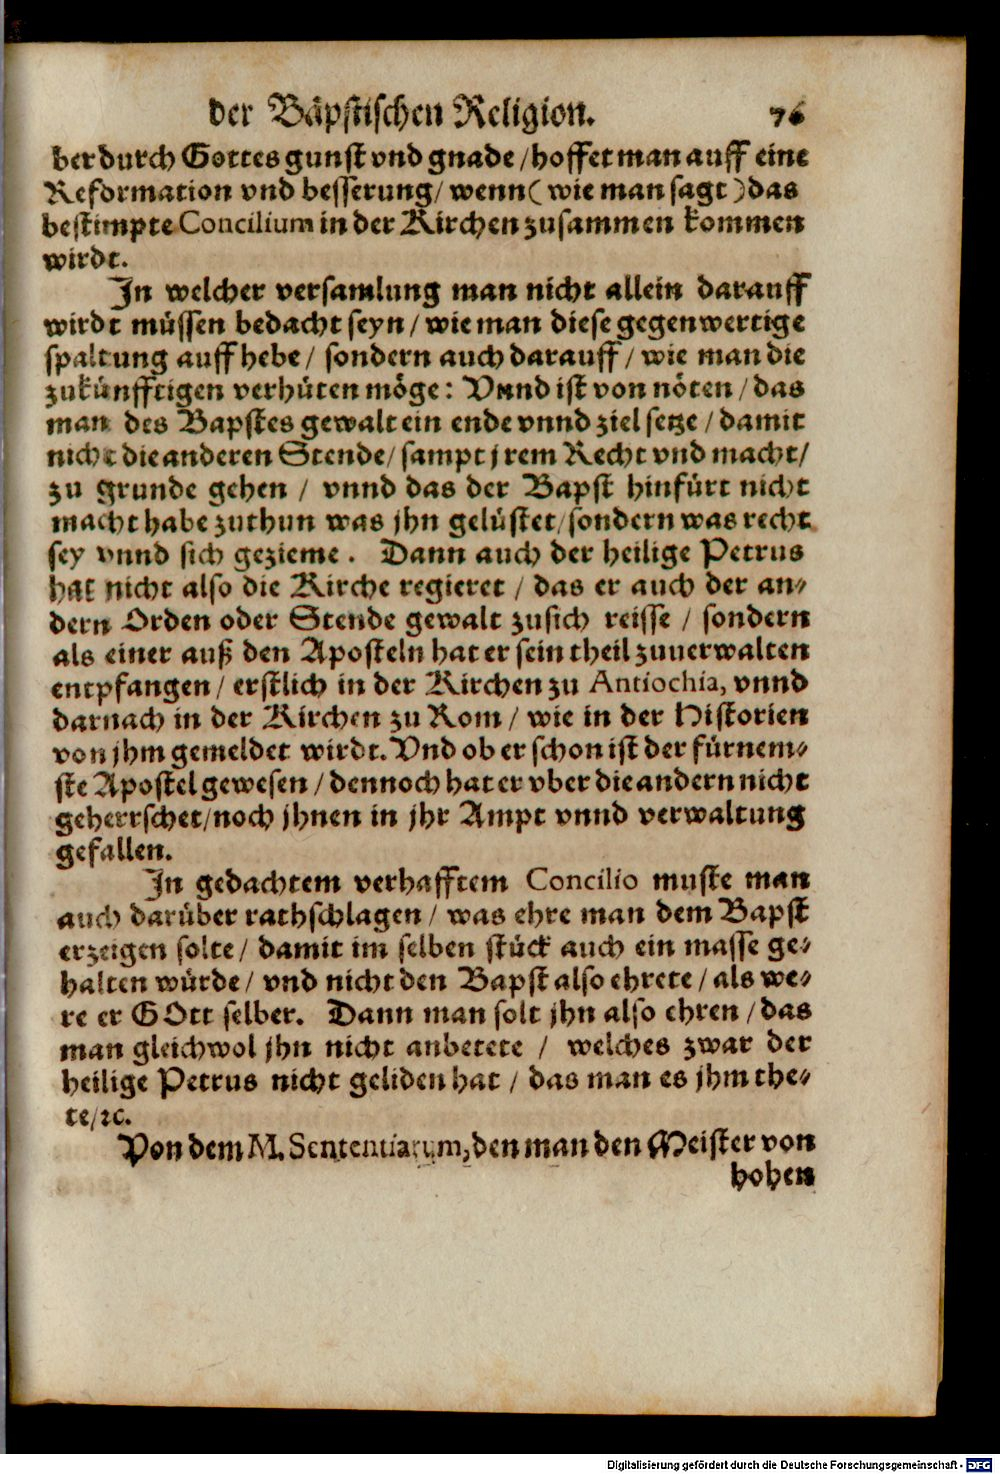 der Bäpstischen Religion. 76
ber durch Gottes gunst vnd gnade / hoffet man auff eine
Reformation vnd besserung / wenn ( wie man sagt ) das
bestimpte Concilium in der Kirchen zusammen kommen
wirdt.
In welcher versamlung man nicht allein darauff
wirdt müssen bedacht seyn / wie man diese gegenwertige
spaltung auffhebe / sondern auch darauff / wie man die
zukünfftigen verhüten möge: Vnnd ist von nöten / das
man des Bapstes gewalt ein ende vnnd ziel setze / damit
nicht die anderen Stende / sampt jrem Recht vnd macht /
zu grunde gehen / vnnd das der Bapst hinfürt nicht
macht habe zuthun was jhn gelüstet / sondern was recht
sey vnnd sich gezieme. Dann auch der heilige Petrus
hat nicht also die Kirche regieret / das er auch der an⸗
dern Orden oder Stende gewalt zusich reisse / sondern
als einer auß den Aposteln hat er sein theil zuuerwalten
entpfangen / erstlich in der Kirchen zu Antiochia, vnnd
darnach in der Kirchen zu Rom / wie in der Historien
von jhm gemeldet wirdt. Vnd ob er schon ist der fürnem⸗
ste Apostel gewesen / dennoch hat er vber die andern nicht
geherrschet / noch jhnen in jhr Ampt vnnd verwaltung
gefallen.
In gedachtem verhafftem Concilio muste man
auch darüber rathschlagen / was ehre man dem Bapst
erzeigen solte / damit im selben stück auch ein masse ge⸗
halten würde / vnd nicht den Bapst also ehrete / als we⸗
re er GOtt selber. Dann man solt jhn also ehren / das
man gleichwol jhn nicht anbetete / welches zwar der
heilige Petrus nicht geliden hat / das man es jhm the⸗
te / ꝛc.
Von dem M. Sententiarum, den man den Meister von
hohen
Digitalisierung gefördert durch die Deutsche Forschungsgemeinschaft - DFG